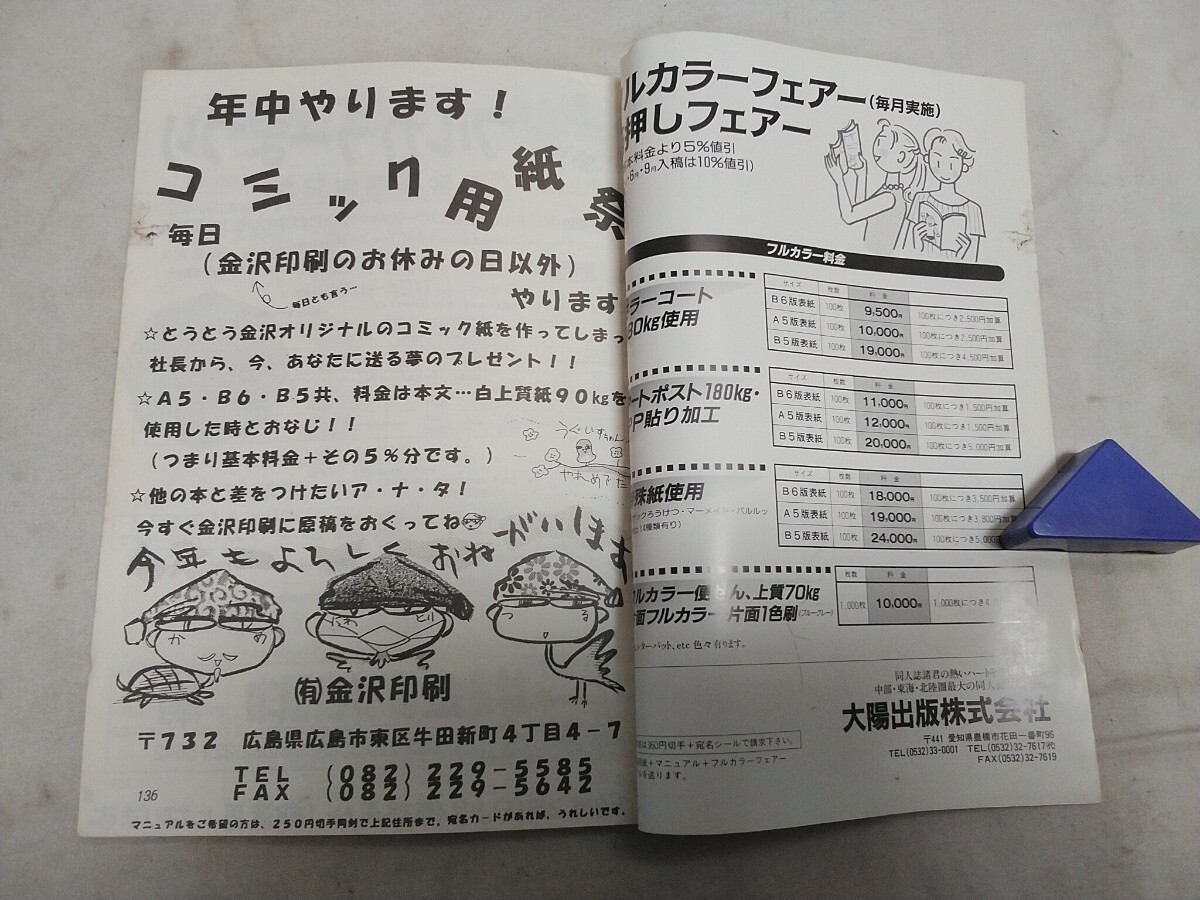 年中やります！
コミック用紙祭
毎日
（金沢印刷のお休みの日以外）
毎日とも言う…
やります
☆とうとう金沢オリジナルのコミック紙を作ってしまっ
社長から、今、あなたに送る夢のプレゼント！！
☆A5・B6・B5共、料金は本文…白上質紙90kgを
使用した時とおなじ！！
（つまり基本料金＋その5％分です。）
うぐいすちゃん
やれめでた
☆他の本と差をつけたいア・ナ・タ！
今すぐ金沢印刷に原稿をおくってね
今年もよろしくおねがいします
かめ
にわとり
つる
㈲金沢印刷
〒732 広島県広島市東区牛田新町4丁目4-7
TEL (082) 229-5585
FAX (082) 229-5642
136
マニュアルをご希望の方は、250円切手同封で上記住所まで。宛名カードがあれば、うれしいです。
ルカラーフェアー(毎月実施)
押しフェアー
本料金より5％値引
・6月・9月入稿は10％値引)
フルカラー料金
ラーコート
80kg使用
サイズ 枚数 料金
B6版表紙 100枚 9,500円 100枚につき2,500円加算
A5版表紙 100枚 10,000円 100枚につき2,500円加算
B5版表紙 100枚 19,000円 100枚につき4,500円加算
ートポスト180kg・
PP貼り加工
サイズ 枚数 料金
B6版表紙 100枚 11,000円 100枚につき1,500円加算
A5版表紙 100枚 12,000円 100枚につき1,500円加算
B5版表紙 100枚 20,000円 100枚につき5,000円加算
殊紙使用
ックろうけつ・マーメイド・パルルッ
14種類有り)
サイズ 枚数 料金
B6版表紙 100枚 18,000円 100枚につき3,500円加算
A5版表紙 100枚 19,000円 100枚につき3,800円加算
B5版表紙 100枚 24,000円 100枚につき5,000
ルカラー便せん、上質70kg
面フルカラー片面1色刷(ブルーグレー)
枚数 料金
1,000枚 10,000円 1,000枚につき4
ターパット、etc 色々有ります。
同人誌諸君の熱いハート
中部・東海・北陸圏最大の同人
大陽出版株式会社
〒441 愛知県豊橋市花田一番町96
TEL(0532)33-0001 TEL(0532)32-7617代
FAX(0532)32-7619
は360円切手＋宛名シールで請求下さい。
紙＋マニュアル＋フルカラーフェアー
を送ります。